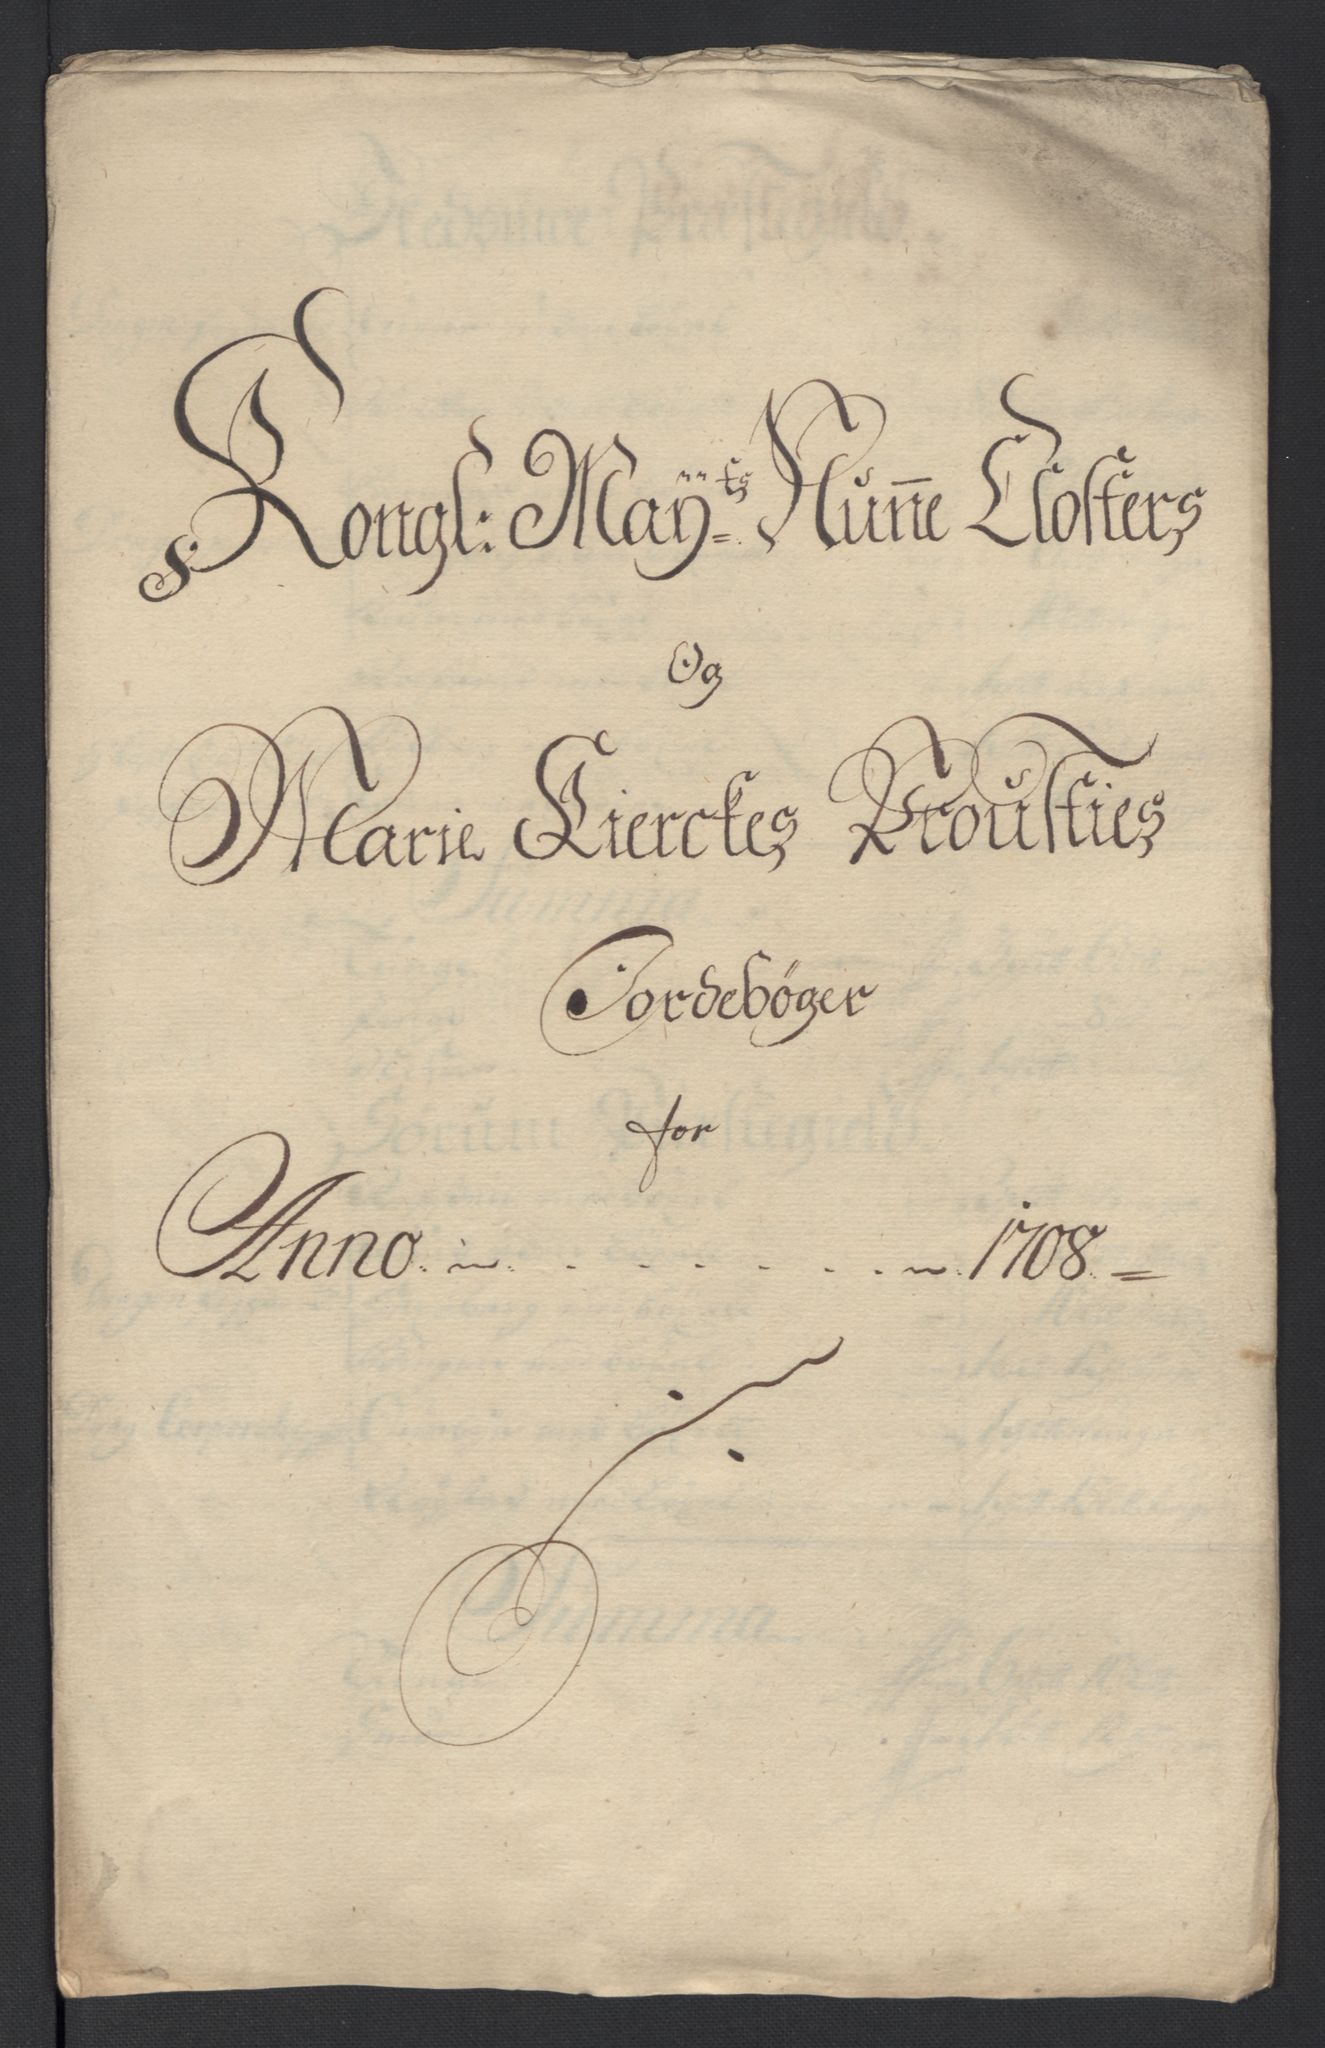 Kongl: Maÿ=ts Nūn̄e Closters
Og
Marie Kierckes Proūsties
Jordebøger
for
Anno. . . . . . . . . 1708. =